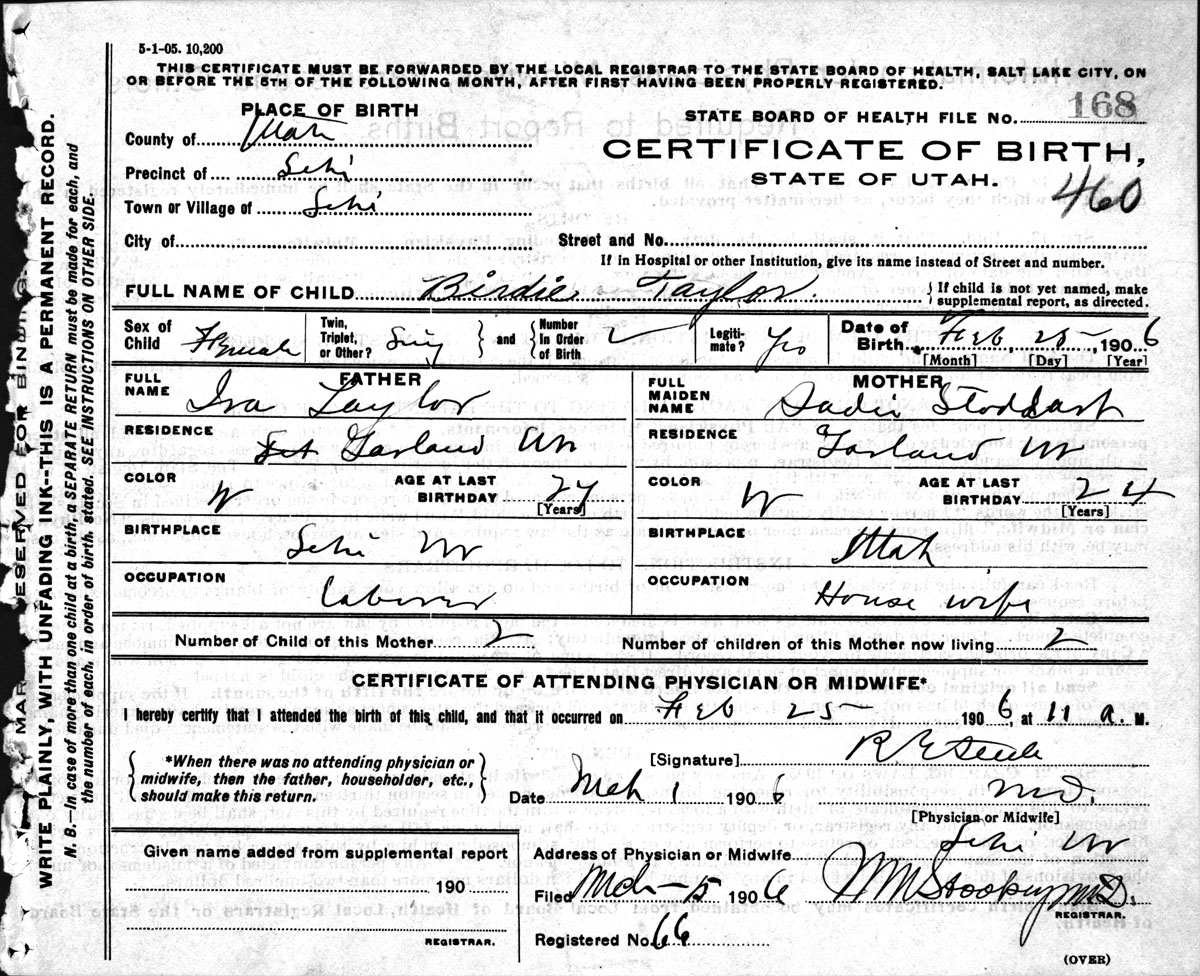 5-1-05. 10,200
THIS CERTIFICATE MUST BE FORWARDED BY THE LOCAL REGISTRAR TO THE STATE BOARD OF HEALTH, SALT LAKE CITY, ON
OR BEFORE THE 5TH OF THE FOLLOWING MONTH, AFTER FIRST HAVING BEEN PROPERLY REGISTERED.
PLACE OF BIRTH
STATE BOARD OF HEALTH FILE NO. 168
County of Utah
CERTIFICATE OF BIRTH,
Precinct of Lehi
STATE OF UTAH.
460
Town or Village of Lehi
City of
Street and No.
If in Hospital or other Institution, give its name instead of Street and number.
FULL NAME OF CHILD Birdie Taylor. { If child is not yet named, make supplemental report, as directed.
Sex of Child Female Twin, Triplet, or Other? Sing } and { Number In Order of Birth 2 Legiti- mate? Yes Date of Birth Feb, 25, 1906
[Month] [Day] [Year]
FATHER
FULL NAME Ira Taylor
RESIDENCE Garland Ut
COLOR W AGE AT LAST BIRTHDAY 27
[Years]
BIRTHPLACE Lehi Ut
OCCUPATION Laborer
MOTHER
FULL MAIDEN NAME Sadie Stoddart
RESIDENCE Garland Ut
COLOR W AGE AT LAST BIRTHDAY 24
[Years]
BIRTHPLACE Utah
OCCUPATION House wife
Number of Child of this Mother 2 Number of children of this Mother now living 2
CERTIFICATE OF ATTENDING PHYSICIAN OR MIDWIFE*
I hereby certify that I attended the birth of this child, and that it occurred on Feb 25 1906, at 11 a. M.
{ *When there was no attending physician or midwife, then the father, householder, etc., should make this return. }
[Signature] R E Steele
Date Mch 1 1906 M.D.
[Physician or Midwife]
Given name added from supplemental report
190
REGISTRAR.
Address of Physician or Midwife Lehi Ut
Filed Mch-5 1906 W M Stookey M.D.
REGISTRAR.
Registered No. 66
(OVER)
MAR RESERVED FOR BINDING
WRITE PLAINLY, WITH UNFADING INK--THIS IS A PERMANENT RECORD.
N. B. In case of more than one child at a birth, a SEPARATE RETURN must be made for each, and
the number of each, in order of birth, stated. SEE INSTRUCTIONS ON OTHER SIDE.